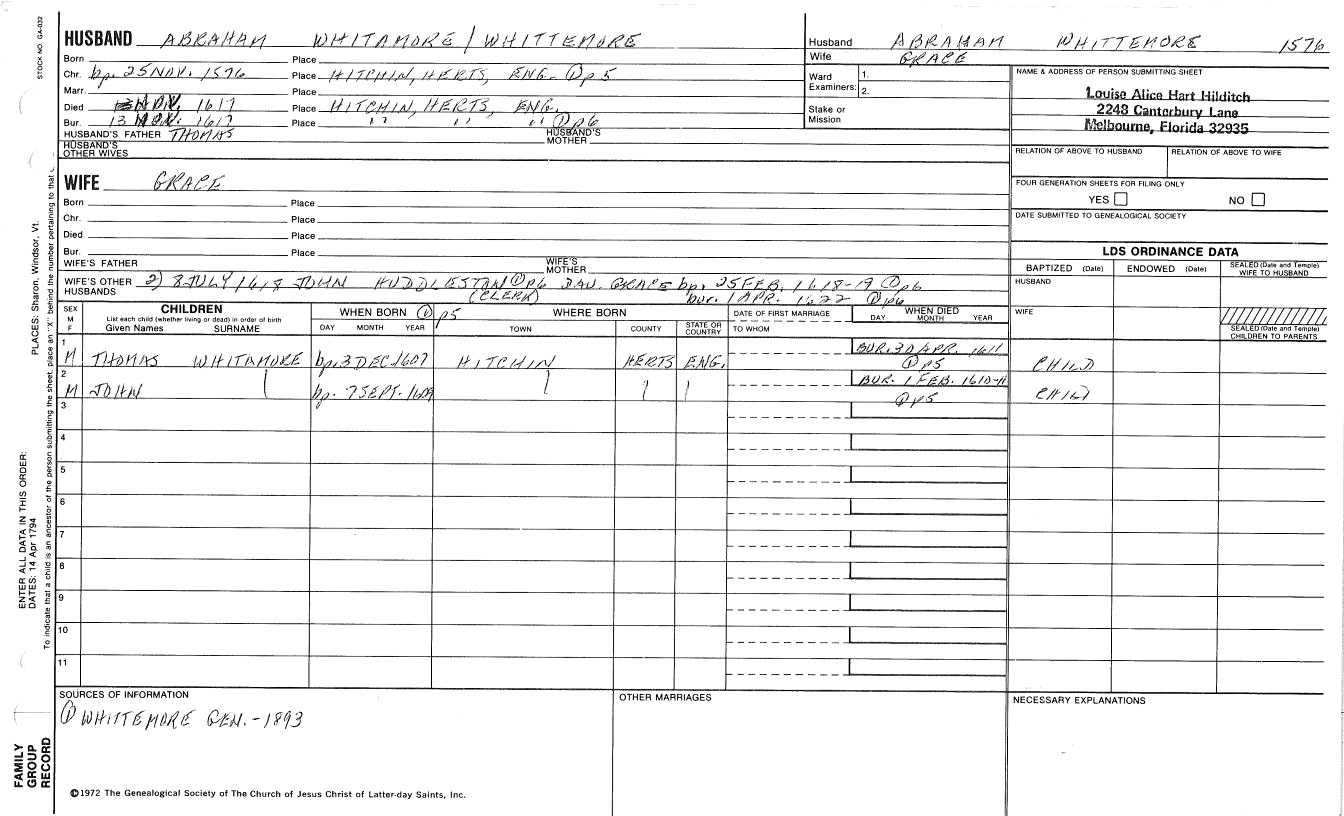 STOCK NO. GA-032
HUSBAND ABRAHAM WHITAMORE / WHITTEMORE
Born Place
Chr. bp. 25 NOV. 1576 Place HITCHIN, HERTS, ENG. ① p 5
Marr. Place
Died NOV. 1617 Place HITCHIN, HERTS, ENG.
Bur. 13 NOV. 1617 Place " " " ① p6
HUSBAND'S FATHER THOMAS HUSBAND'S MOTHER
HUSBAND'S OTHER WIVES
Husband ABRAHAM WHITTEMORE 1576
Wife GRACE
Ward Examiners: 1. 2.
Stake or Mission
NAME & ADDRESS OF PERSON SUBMITTING SHEET
Louise Alice Hart Hilditch
2248 Canterbury Lane
Melbourne, Florida 32935
RELATION OF ABOVE TO HUSBAND RELATION OF ABOVE TO WIFE
FOUR GENERATION SHEETS FOR FILING ONLY
YES NO
DATE SUBMITTED TO GENEALOGICAL SOCIETY
WIFE GRACE
Born Place
Chr. Place
Died Place
Bur. Place
WIFE'S FATHER WIFE'S MOTHER
WIFE'S OTHER HUSBANDS 2) 8 JULY 1618 JOHN HUDDLESTON ① p6 DAU. GRACE bp. 25 FEB. 1618-19 ① p6
(CLERK) bur. 1 APR. 1622 ① p6
LDS ORDINANCE DATA
BAPTIZED (Date) ENDOWED (Date) SEALED (Date and Temple) WIFE TO HUSBAND
HUSBAND
WIFE
SEALED (Date and Temple) CHILDREN TO PARENTS
SEX M F
CHILDREN
List each child (whether living or dead) in order of birth
Given Names SURNAME
WHEN BORN ① p5
DAY MONTH YEAR
WHERE BORN
TOWN COUNTY STATE OR COUNTRY
DATE OF FIRST MARRIAGE
TO WHOM
WHEN DIED
DAY MONTH YEAR
1 M THOMAS WHITAMORE bp. 3 DEC. 1607 HITCHIN HERTS ENG. BUR. 30 APR. 1611 ① p5 CHILD
2 M JOHN bp. 7 SEPT. 1609 BUR. 1 FEB. 1610-11 ① p5 CHILD
3
4
5
6
7
8
9
10
11
SOURCES OF INFORMATION
① WHITTEMORE GEN. - 1893
OTHER MARRIAGES
NECESSARY EXPLANATIONS
©1972 The Genealogical Society of The Church of Jesus Christ of Latter-day Saints, Inc.
FAMILY
GROUP
RECORD
ENTER ALL DATA IN THIS ORDER:
DATES: 14 Apr 1794
PLACES: Sharon, Windsor, Vt.
To indicate that a child is an ancestor of the person submitting the sheet, place an "X" behind the number pertaining to that